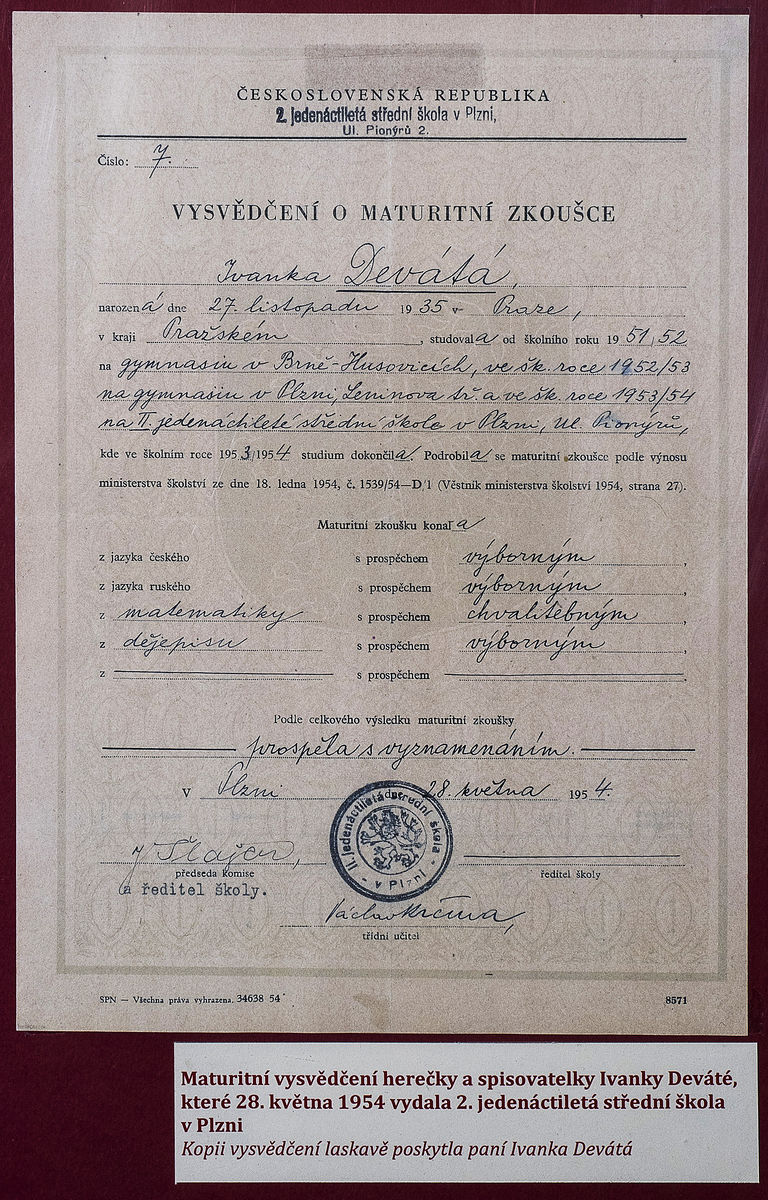 ČESKOSLOVENSKÁ REPUBLIKA
2. jedenáctiletá střední škola v Plzni,
Ul. Pionýrů 2.
Číslo: 7.
VYSVĚDČENÍ O MATURITNÍ ZKOUŠCE
Ivanka Devátá,
narozená dne 27. listopadu 1935 v Praze,
v kraji Pražském, studovala od školního roku 1951/52
na gymnasiu v Brně-Husovicích, ve šk. roce 1952/53
na gymnasiu v Plzni, Leninova tř. a ve šk. roce 1953/54
na II. jedenáctileté střední škole v Plzni, Ul. Pionýrů,
kde ve školním roce 1953/1954 studium dokončila. Podrobila se maturitní zkoušce podle výnosu
ministerstva školství ze dne 18. ledna 1954, č. 1539/54—D/1 (Věstník ministerstva školství 1954, strana 27).
Maturitní zkoušku konala
z jazyka českého s prospěchem výborným,
z jazyka ruského s prospěchem výborným,
z matematiky s prospěchem chvalitebným,
z dějepisu s prospěchem výborným,
z s prospěchem
Podle celkového výsledku maturitní zkoušky
prospěla s vyznamenáním.
V Plzni dne 28. května 1954.
II. jedenáctiletá střední škola
v Plzni
předseda komise ředitel školy
a ředitel školy.
Václav Krčma,
třídní učitel
SPN — Všechna práva vyhrazena. 34638 54 8571
Maturitní vysvědčení herečky a spisovatelky Ivanky Deváté,
které 28. května 1954 vydala 2. jedenáctiletá střední škola
v Plzni
Kopii vysvědčení laskavě poskytla paní Ivanka Devátá